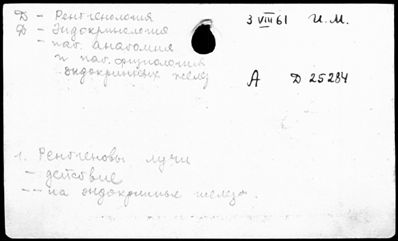 Д - Рентгенология
Д - Эндокринология
- пат. анатомия
и пат. физиология
эндокринных желез
3 VIII 61 И. М.
А Д 25284
1. Рентгеновы лучи
- действие
-- на эндокринные железы.